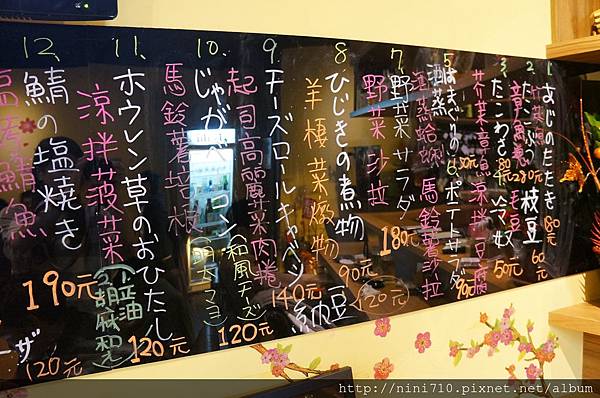 1、
あじのたたき
80元
2、
枝豆
毛豆
60元
3、
たこわさ
80元
冷奴
50元
芥菜章魚
涼拌豆腐
5、
酒蒸
ポテトサラダ
90元
酒蒸蛤蜊
馬鈴薯沙拉
7、
野菜サラダ
180元
野菜沙拉
8、
ひじきの煮物
90元
羊棲菜燉物
納豆
120元
9、
チーズロールキャベツ
140元
起司高麗菜肉捲
10、
じゃがベーコン
(和風チーズ)
(明太マヨ)
120元
馬鈴薯培根
11、
ホウレン草のおひたし
120元
涼拌菠菜
(小豆油)
(胡麻和え)
12、
鯖の塩焼き
190元
塩烤鯖魚
ーザ
120元
http://nini710.pixnet.net/album